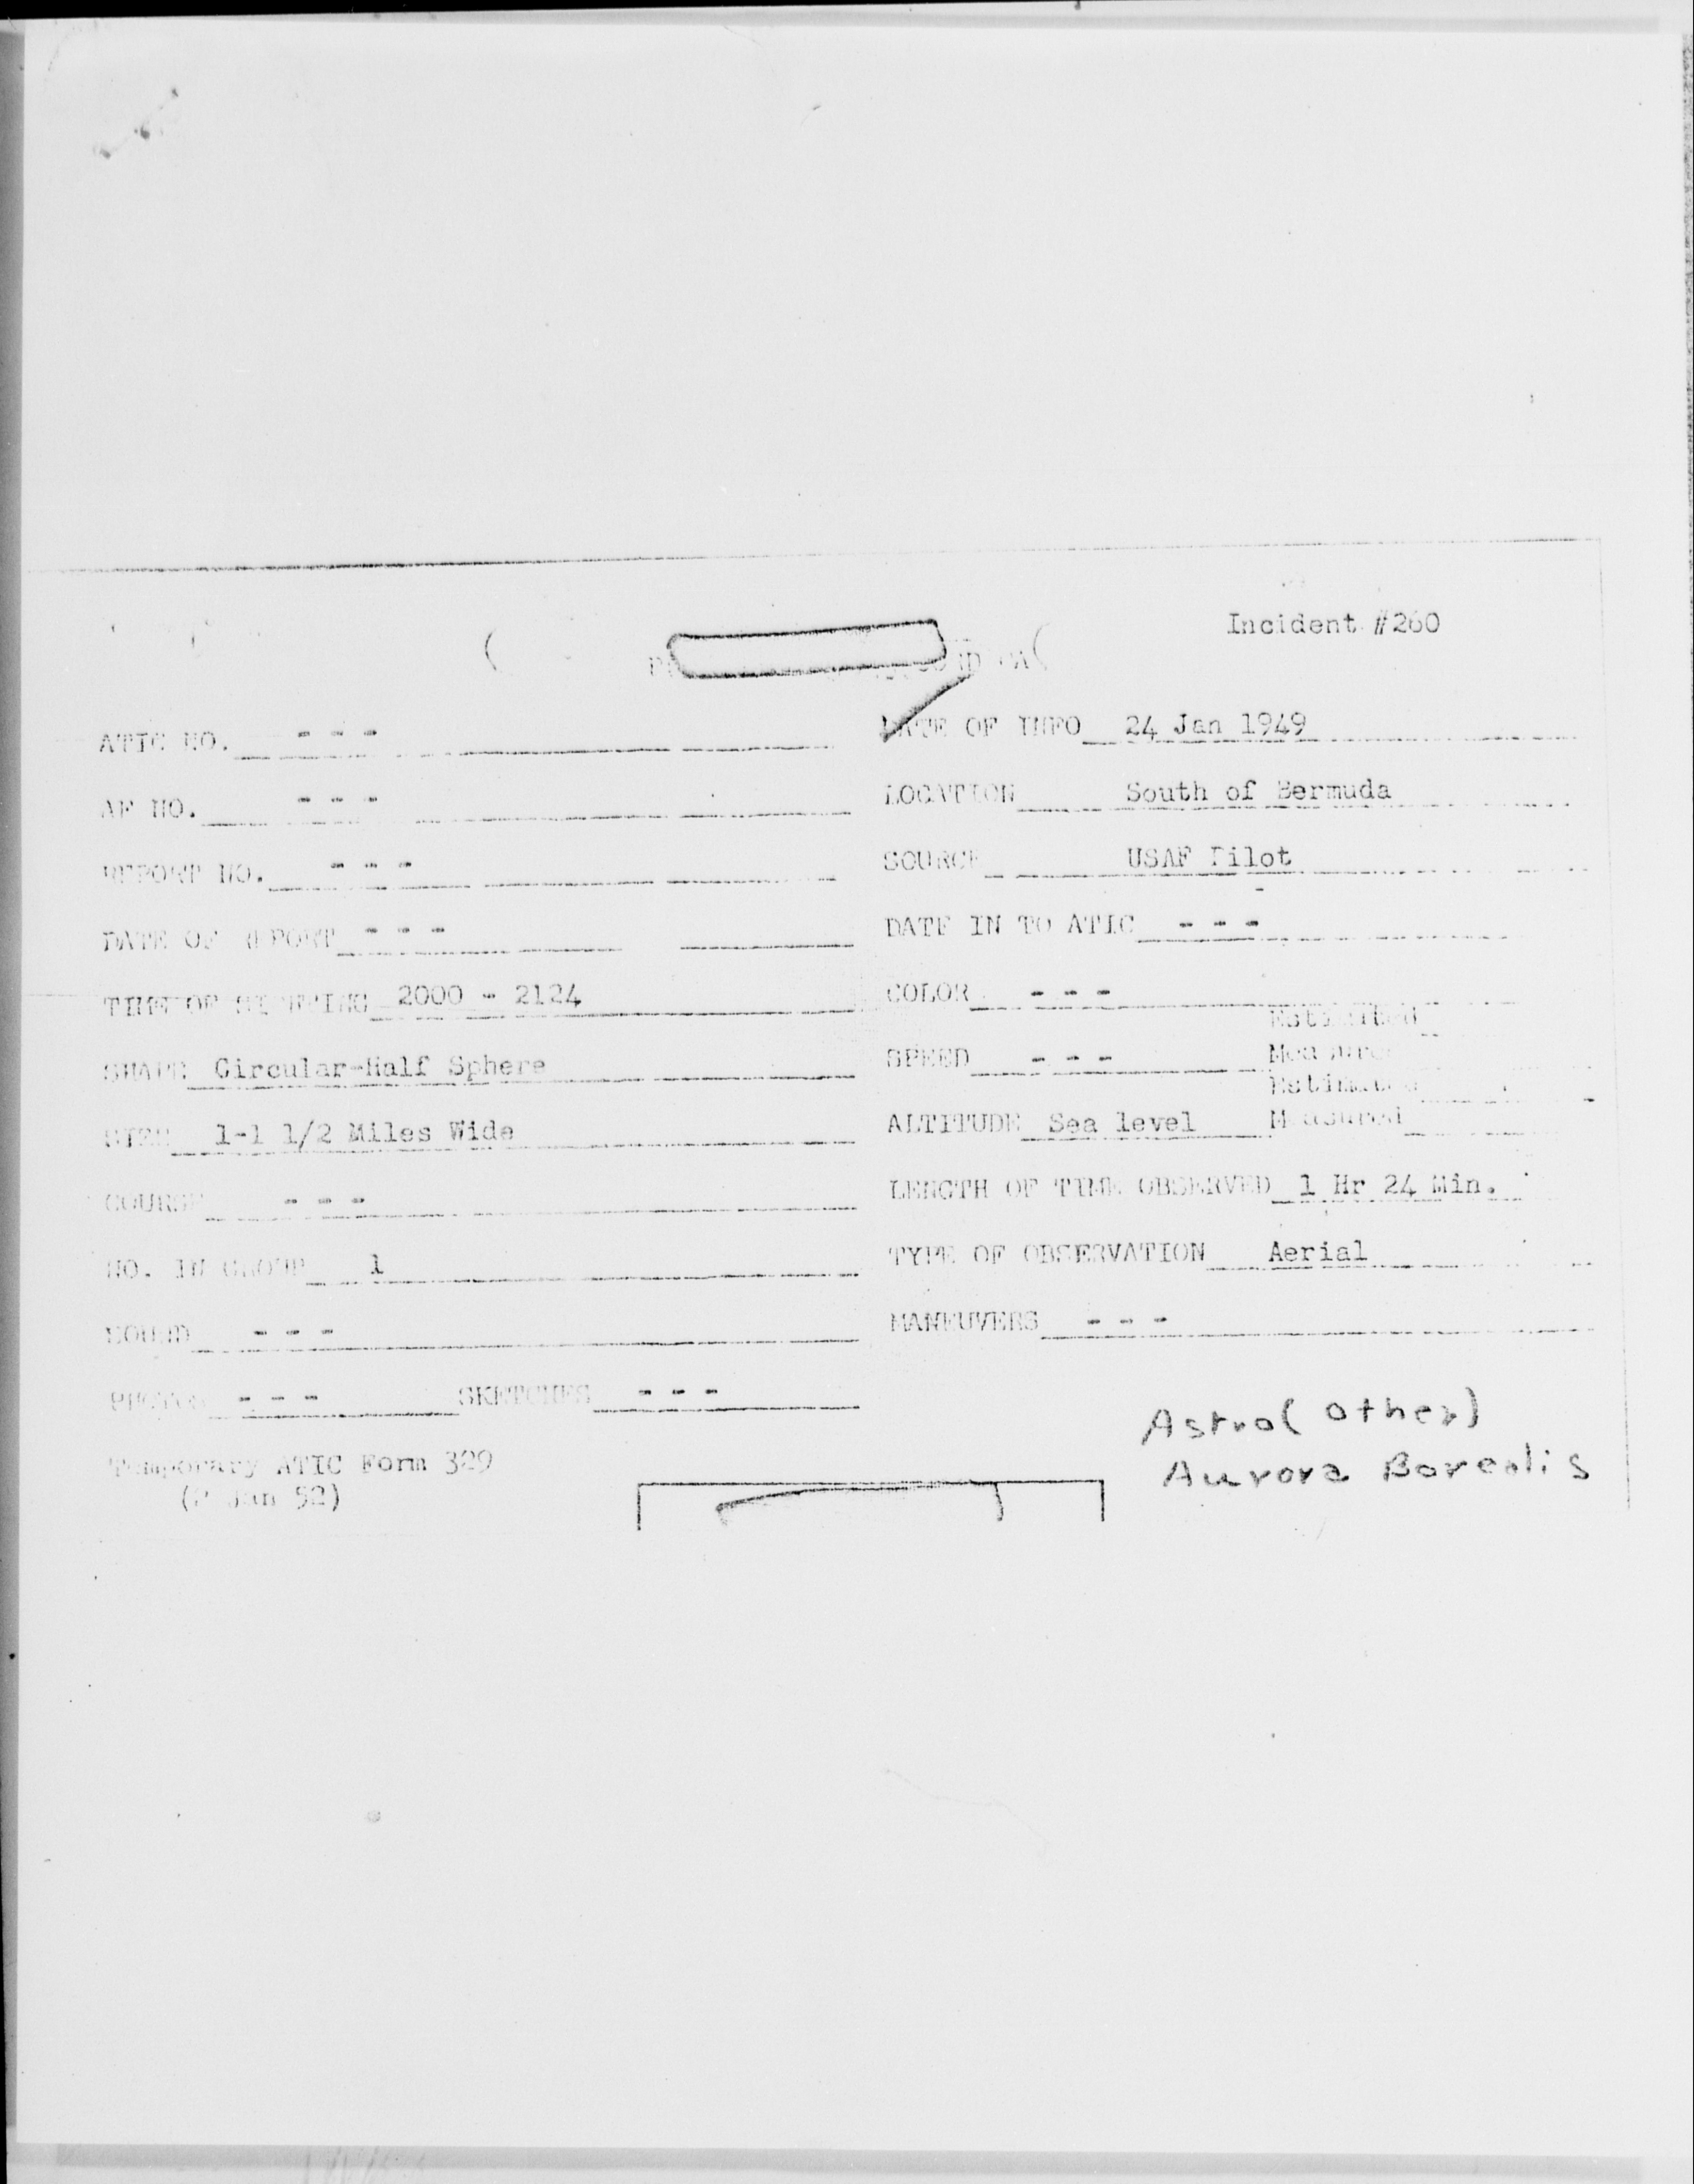 Incident #260
ATIC NO. - - -
DATE OF INFO 24 Jan 1949
AF NO. - - -
LOCATION South of Bermuda
REPORT NO. - - -
SOURCE USAF Pilot
DATE OF REPORT - - -
DATE IN TO ATIC - - -
TIME OF SIGHTING 2000 - 2124
COLOR - - -
SHAPE Circular-Half Sphere
SPEED - - -
Estimated
Measured
SIZE 1-1 1/2 Miles Wide
ALTITUDE Sea level
Estimated
Measured
COURSE - - -
LENGTH OF TIME OBSERVED 1 Hr 24 Min.
NO. IN GROUP 1
TYPE OF OBSERVATION Aerial
SOUND - - -
MANEUVERS - - -
PHOTOS - - - SKETCHES - - -
Astro (other)
Aurora Borealis
Temporary ATIC Form 329
(2 Jan 52)